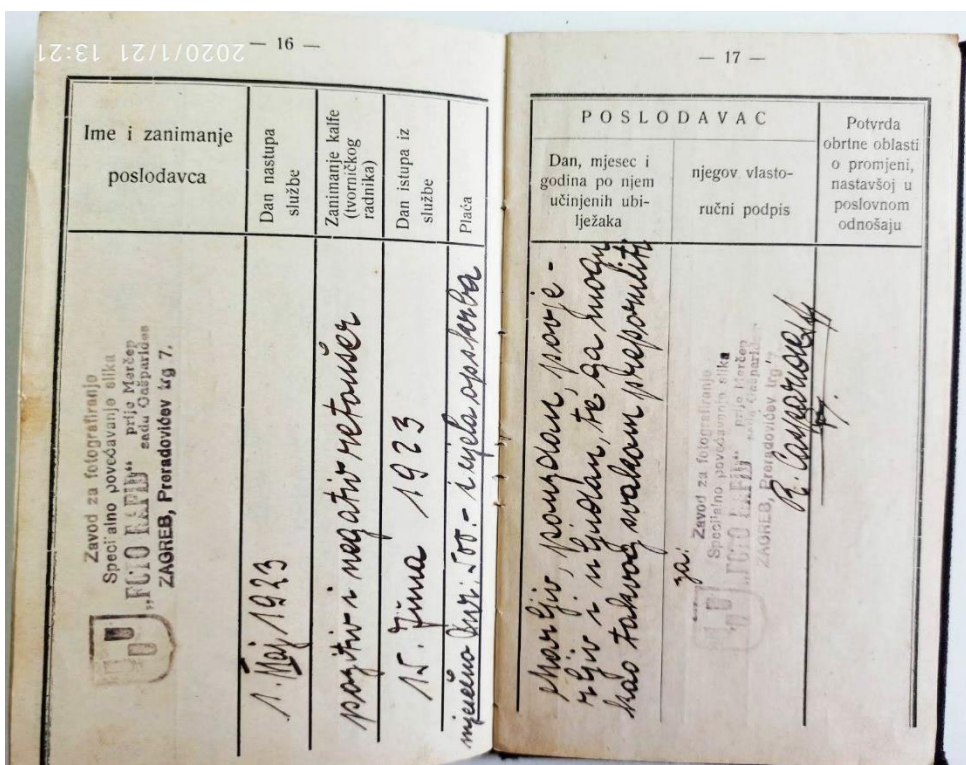 2020/1/21 13:21
— 16 —
Ime i zanimanje
poslodavca
Dan nastupa
službe
Zanimanje kalfe
(tvorničkog
radnika)
Dan istupa iz
službe
Plaća
Zavod za fotografiranje
Specijalno povećavanje slika
„FOTO RAPID“ prije Merčep
sada Gašparides
ZAGREB, Preradovićev trg 7.
1. Maj 1923
pozitiv i negativ retoušer
15. Juna 1923
mjesečno 500.- i cijela opskrba
— 17 —
POSLODAVAC
Dan, mjesec i
godina po njem
učinjenih ubi-
lježaka
njegov vlasto-
ručni podpis
Potvrda
obrtne oblasti
o promjeni,
nastavšoj u
poslovnom
odnošaju
marljiv, pouzdan, povje-
rljiv i uljudan, te ga mogu
kao takvog svakom preporučiti
za:
Zavod za fotografiranje
Specijalno povećavanje slika
„FOTO RAPID“ prije Merčep
sada Gašparides
ZAGREB, Preradovićev trg 7.